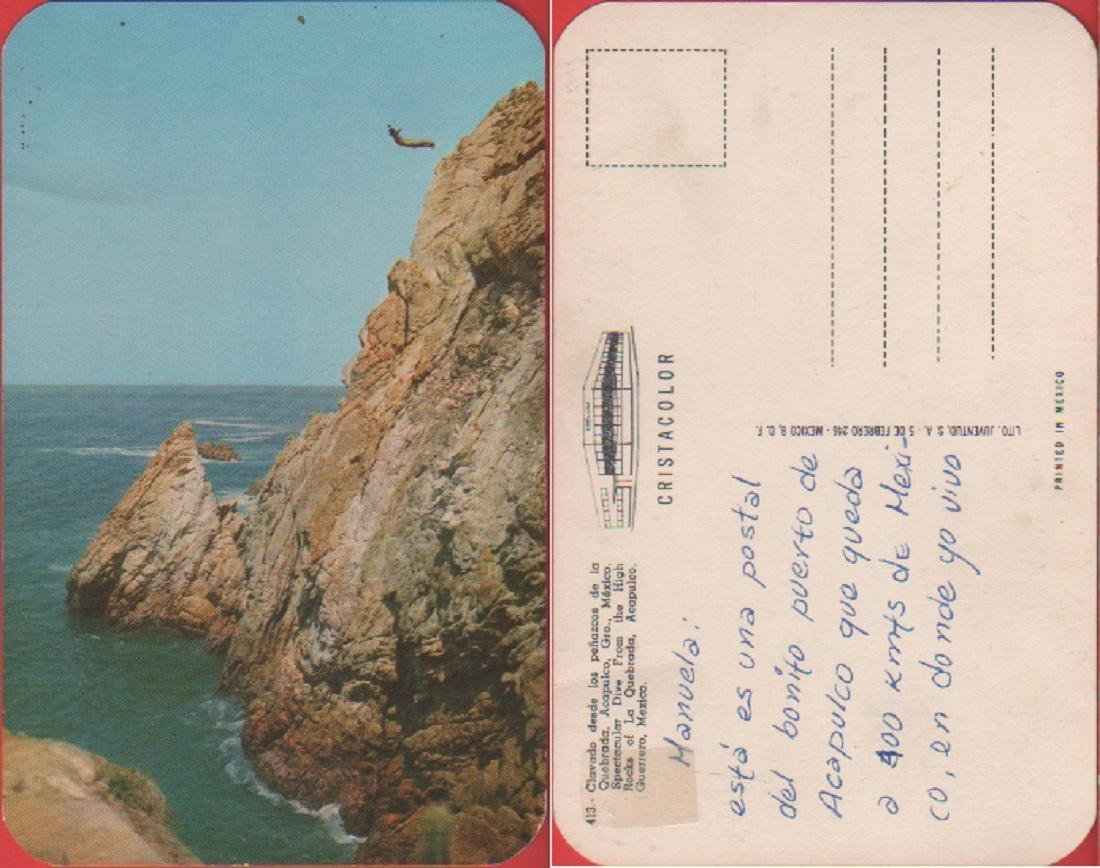 413.- Clavado desde los peñazcos de la
Quebrada, Acapulco, Gro., México.
Spectacular Dive From the High
Rocks of La Quebrada, Acapulco,
Guerrero, Mexico.
CRISTACOLOR
LITO. JUVENTUD, S. A. - 5 DE FEBRERO 246 - MEXICO 8, D. F.
PRINTED IN MEXICO
Manuela:
está es una postal
del bonito puerto de
Acapulco que queda
a 400 kmts de Mexi-
co, en donde yo vivo